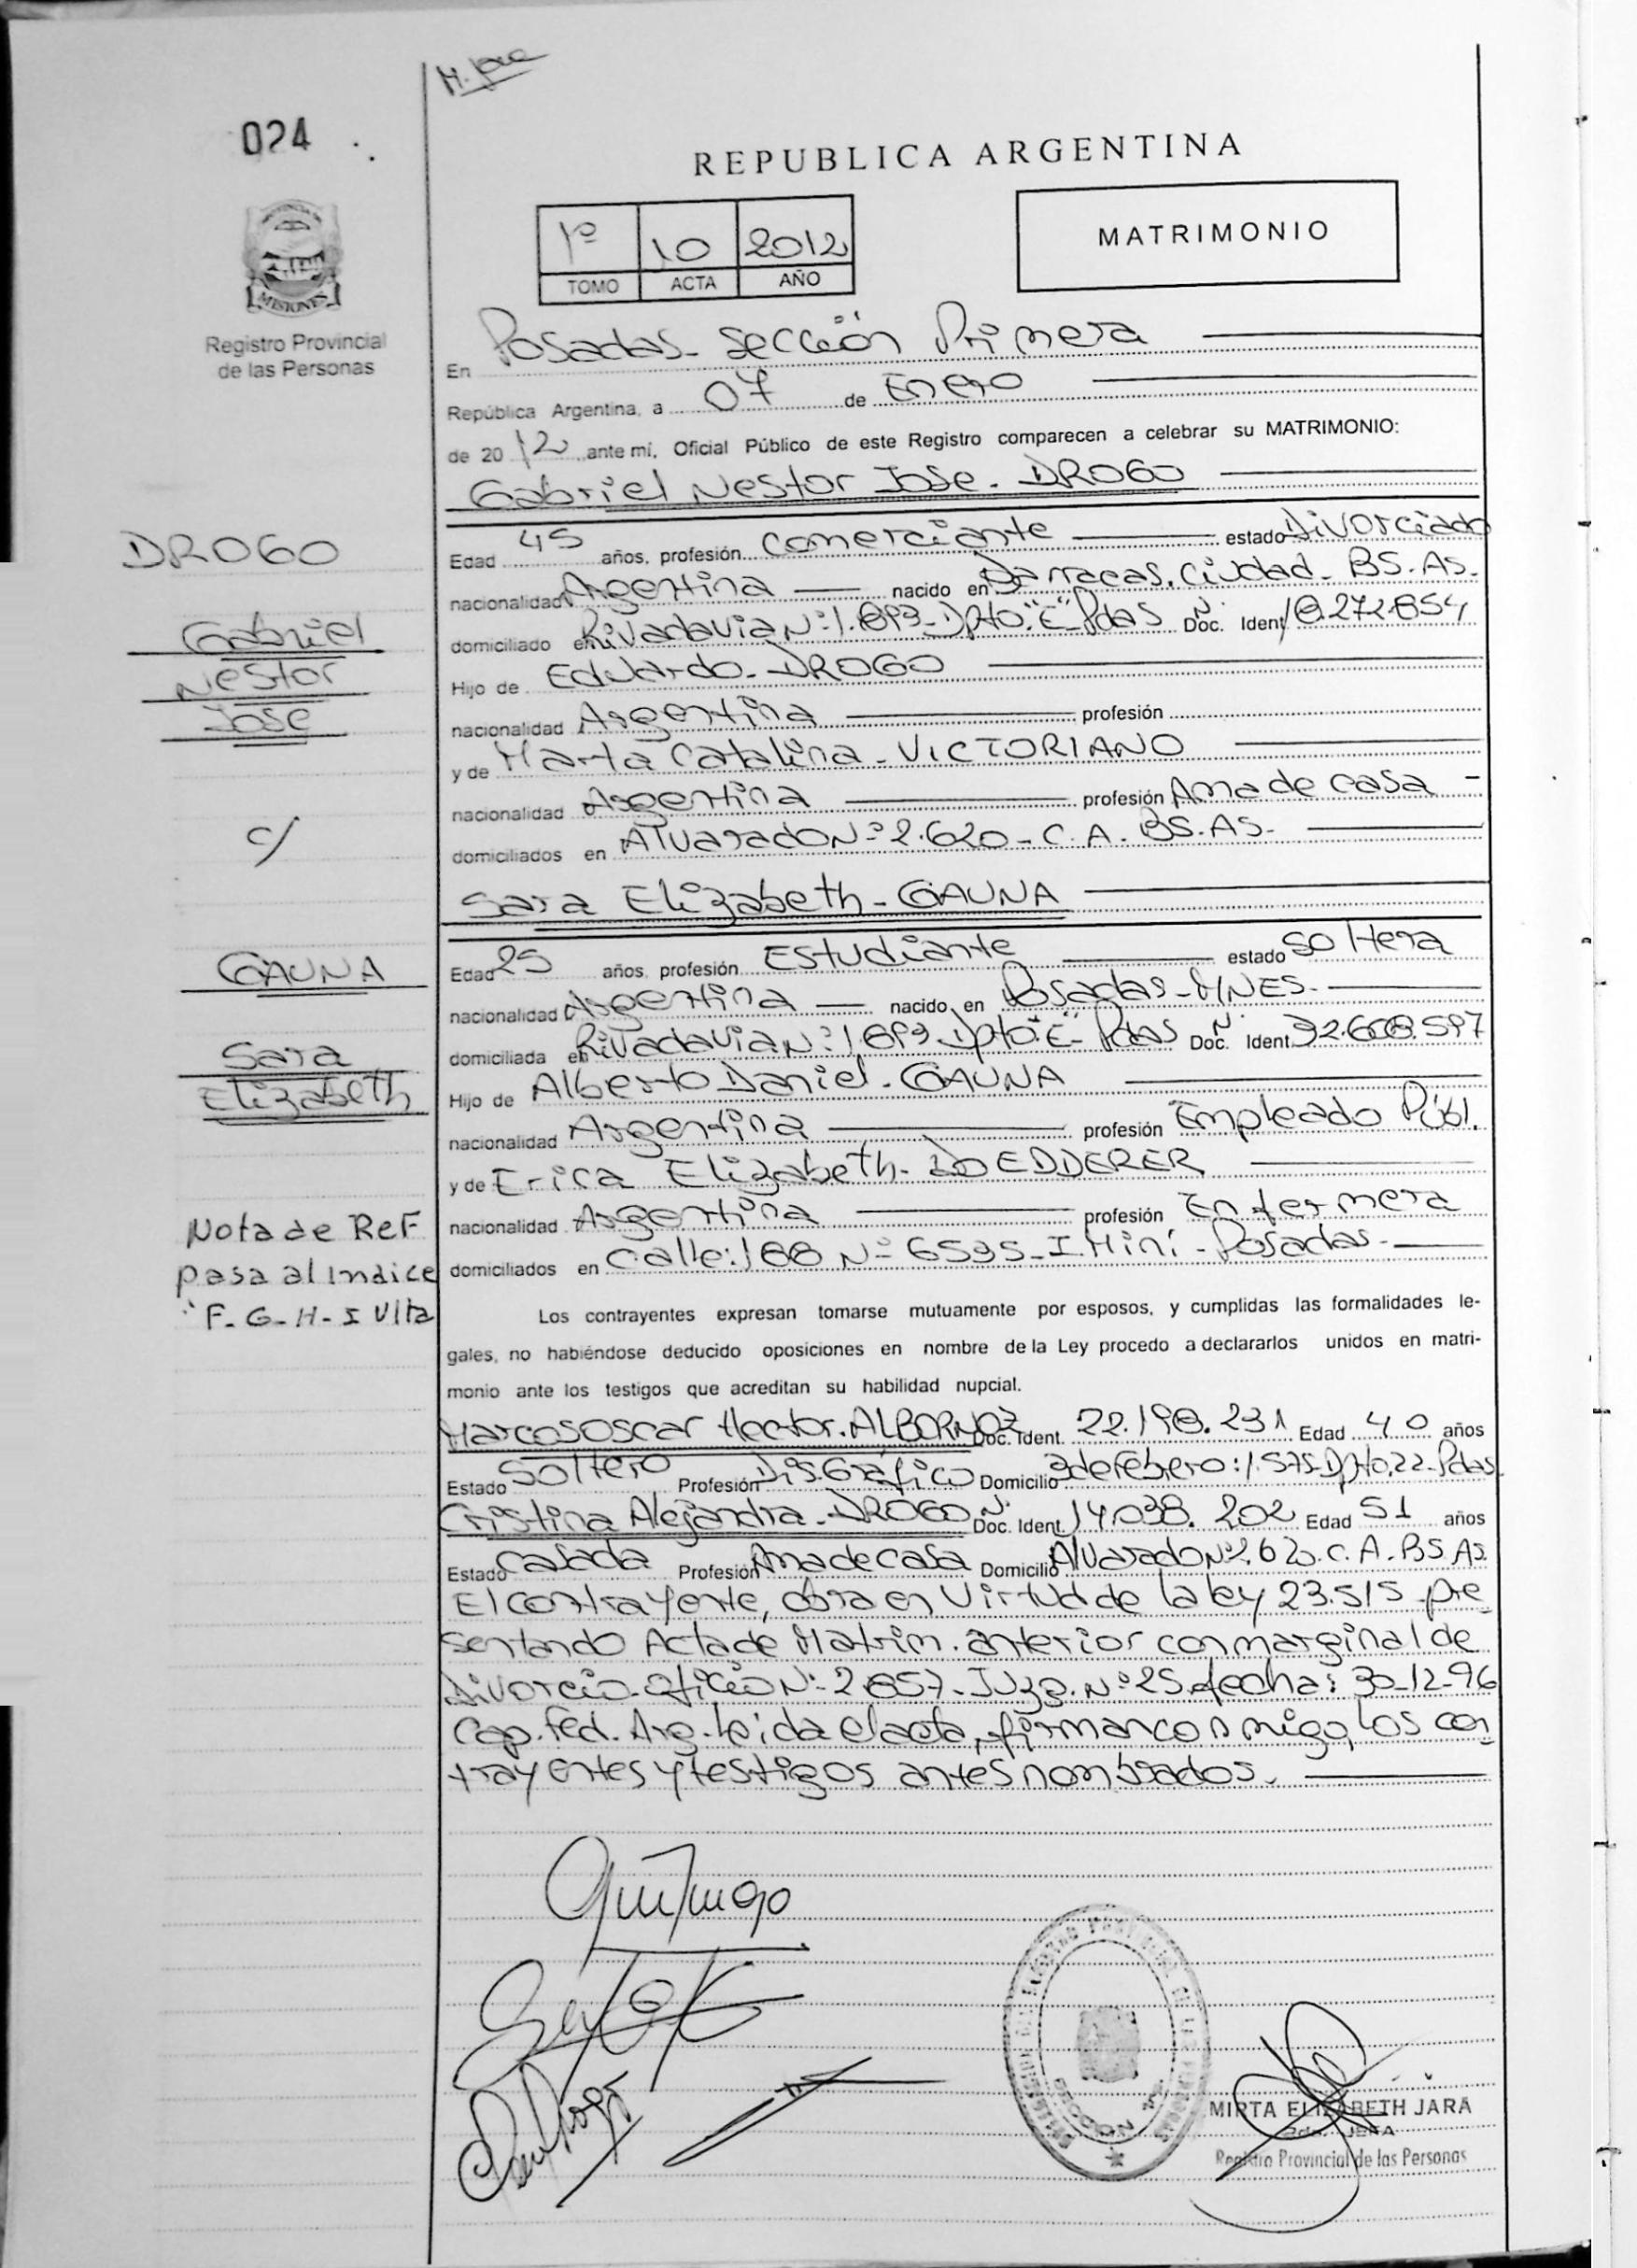 M. Jara
024
REPUBLICA ARGENTINA
1º 10 2012
TOMO ACTA AÑO
MATRIMONIO
PROVINCIA DE
MISIONES
Registro Provincial
de las Personas
En Posadas- sección Primera
República Argentina, a 07 de Enero
de 2012 ante mí, Oficial Público de este Registro comparecen a celebrar su MATRIMONIO:
Gabriel Nestor Jose. DROGO
DROGO
Gabriel
Nestor
Jose
c/
GAUNA
Sara
Elizabeth
Nota de Ref
pasa al Indice
F-G-H-I Vlta
Edad 45 años, profesión Comerciante estado Divorciado
nacionalidad Argentina nacido en Barracas, Ciudad- BS. AS.
domiciliado en Rivadavia Nº: 1.893-Dpto."E"-Pdas Nº Doc. Ident. 18.272.854
Hijo de Eduardo- DROGO
nacionalidad Argentina profesión
y de Marta Catalina- VICTORIANO
nacionalidad Argentina profesión Ama de casa -
domiciliados en Alvarado Nº 2.620- C. A. BS. AS.
Sara Elizabeth- GAUNA
Edad 25 años, profesión Estudiante estado Soltera
nacionalidad Argentina nacido en Posadas- MNES-
domiciliada en Rivadavia Nº: 1.893-Dpto."E"- Pdas Nº Doc. Ident. 32.608.597
Hijo de Alberto Daniel- GAUNA
nacionalidad Argentina profesión Empleado Públ.
y de Erica Elizabeth- DOEDDERER
nacionalidad Argentina profesión Enfermera
domiciliados en Calle: 188 Nº 6595- I. Miní- Posadas-
Los contrayentes expresan tomarse mutuamente por esposos, y cumplidas las formalidades le-
gales, no habiéndose deducido oposiciones en nombre de la Ley procedo a declararlos unidos en matri-
monio ante los testigos que acreditan su habilidad nupcial.
Marcos Oscar Hector. ALBORNOZ Doc. Ident. 22.198.231 Edad 40 años
Estado Soltero Profesión Dis. Gráfico Domicilio 3 de febrero: 1.575-Dpto.22-Pdas
Cristina Alejandra- DROGO Nº Doc. Ident. 14.038.202 Edad 51 años
Estado Casada Profesión Ama de casa Domicilio Alvarado Nº 2.620. C. A. BS. AS.
El contrayente, obra en virtud de la ley 23.515 pre
sentando Acta de Matrim. anterior con marginal de
Divorcio- Oficio Nº: 2.857- Juzg. Nº: 25. fecha: 30-12-96
Cap. Fed. Arg- Leida el acta, firman conmigo, los con
trayentes y testigos antes nombrados.
MIRTA ELIZABETH JARA
JEFA
Registro Provincial de las Personas